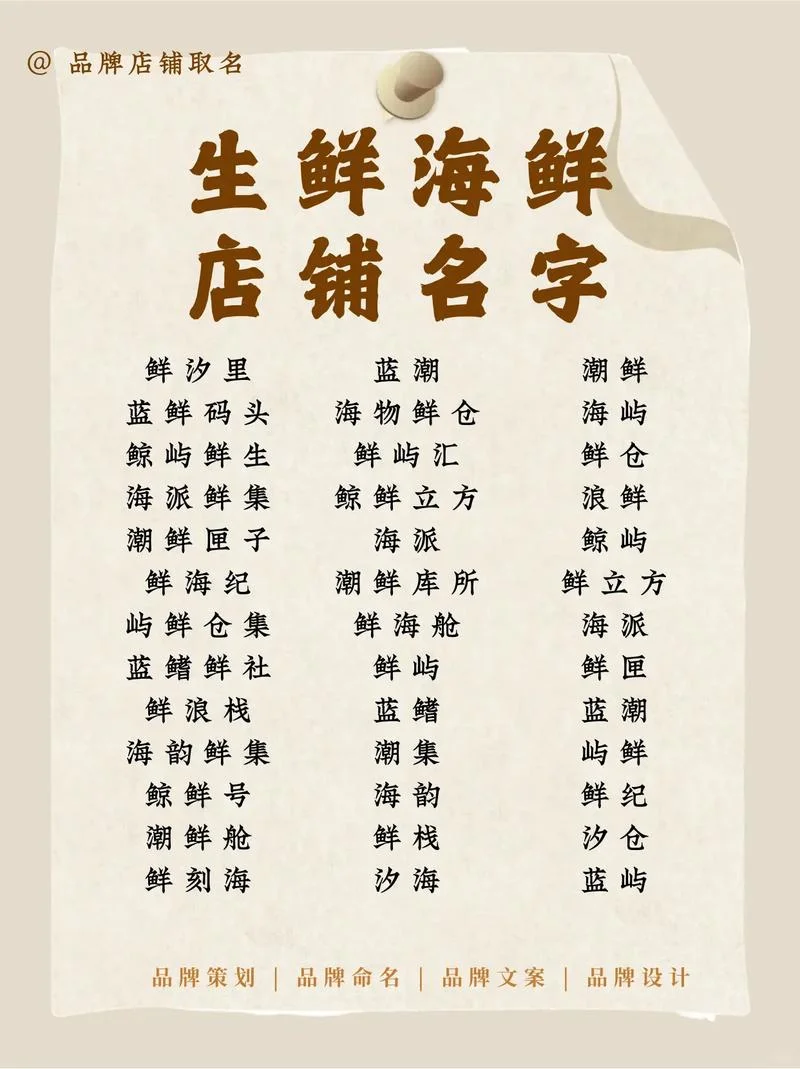 @ 品牌店铺取名
生鲜海鲜
店铺名字
鲜汐里 蓝潮 潮鲜
蓝鲜码头 海物鲜仓 海屿
鲸屿鲜生 鲜屿汇 鲜仓
海派鲜集 鲸鲜立方 浪鲜
潮鲜匣子 海派 鲸屿
鲜海纪 潮鲜库所 鲜立方
屿鲜仓集 鲜海舱 海派
蓝鳍鲜社 鲜屿 鲜匣
鲜浪栈 蓝鳍 蓝潮
海韵鲜集 潮集 屿鲜
鲸鲜号 海韵 鲜纪
潮鲜舱 鲜栈 汐仓
鲜刻海 汐海 蓝屿
品牌策划 | 品牌命名 | 品牌文案 | 品牌设计